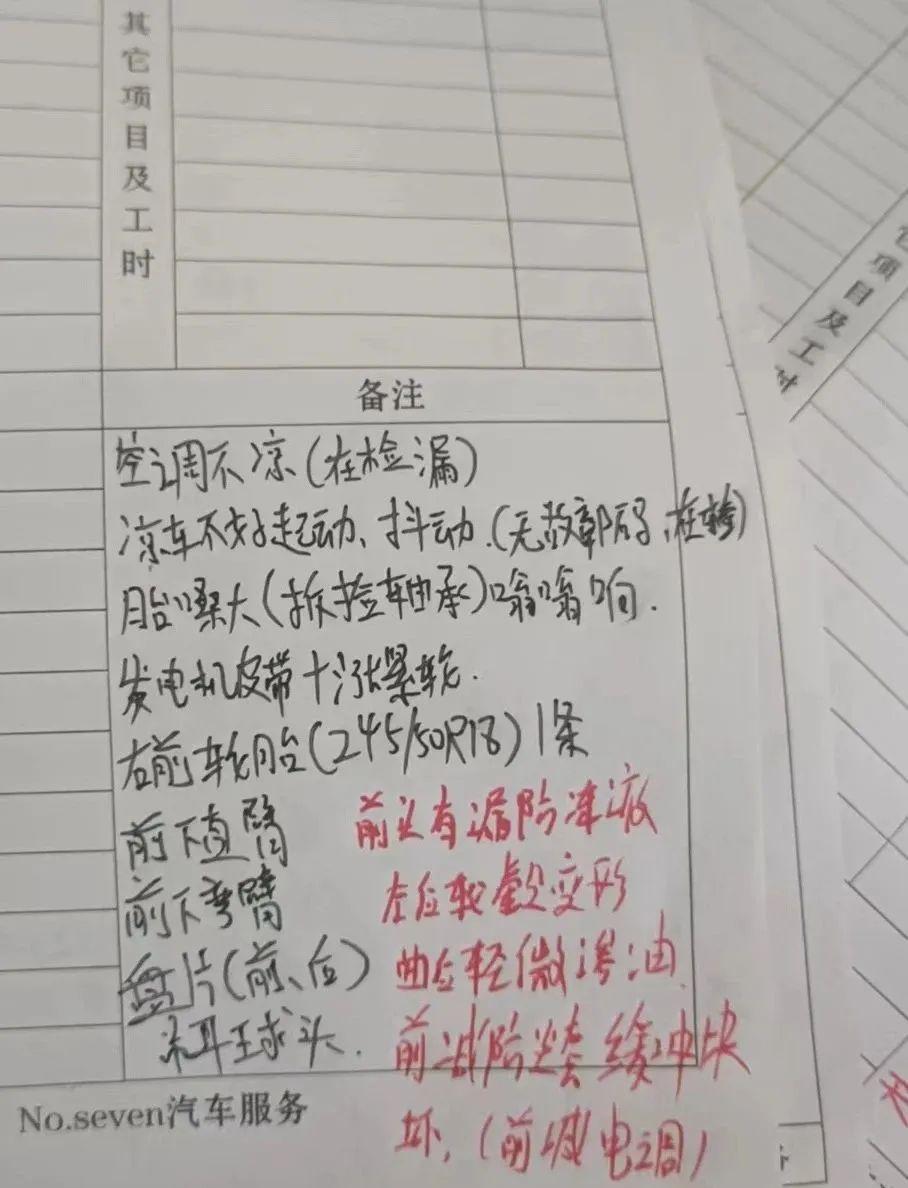 其它项目及工时
它项目及工时
备注
空调不凉(在检漏)
凉车不好起动、抖动.(无故障码,在诊)
胎噪大(拆捡轴承)嗡嗡响.
发电机皮带+涨紧轮.
右前轮胎(245/50R18)1条
前下直臂
前下弯臂
盘片(前、后)
球头.
前头有漏防冻液
左后轮毂变形
曲后轻微渗油
前减 缓冲块
坏,(前减电调)
No.seven汽车服务